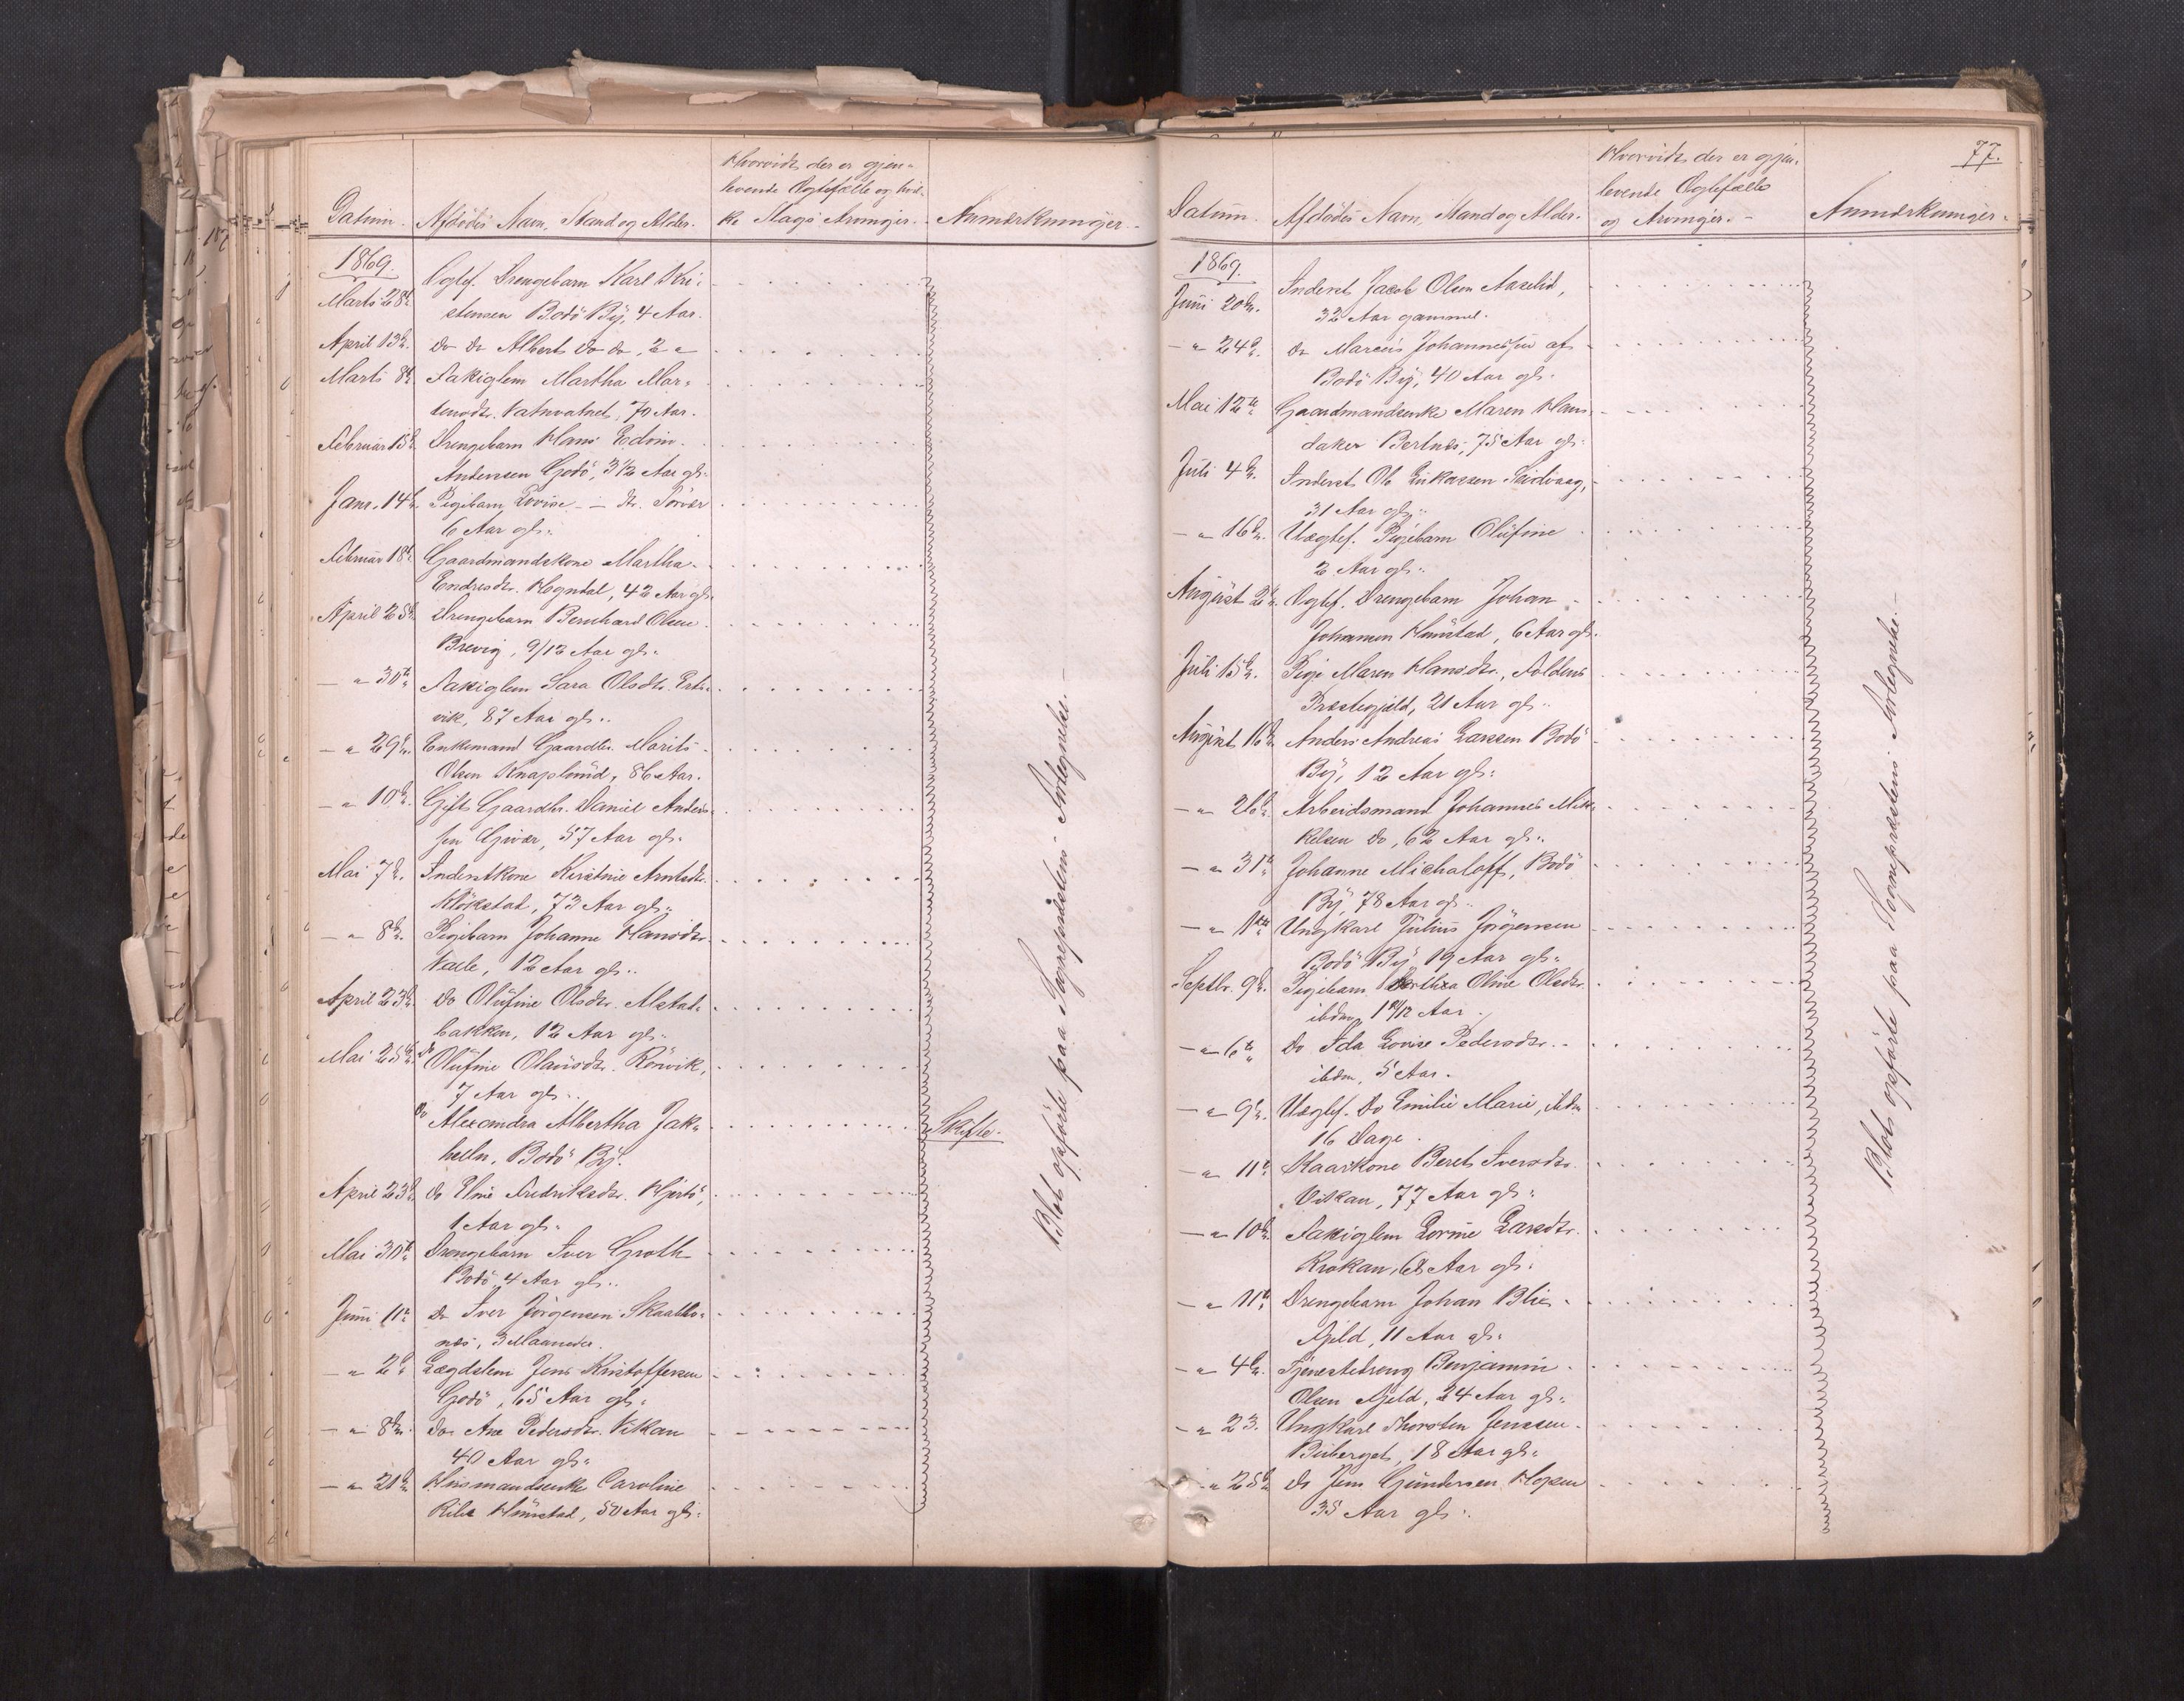 Hvorvidt der er gjen-
levende Ægtefælle og hvil-
Datum. Afdødes Navn, Stand og Alder. ke Slags Arvinger. Anmærkninger.
1869.
Marts 28de Ægtef. Drengebarn Karl Kri-
stensen Bodø By, 4 Aar.
April 13de do do Albert do do, 2 "
Marts 8de Fatiglem Martha Mar-
tensdtr. Vatnvatnet, 70 Aar.
Februar 15de Drengebarn Hans Edvin
Andersen Godø, 3 1/2 Aar gl.
Janr. 14de Pigebarn Lovise — dtr.
6 Aar gl.
Februar 18de Gaardmandskone Martha
Endresdtr. Hogndal, 42 Aar gl.
April 25de Drengebarn Bernhard Olsen
Brevig, 9/12 Aar gl.
— " 30te Fatiglem Sara Olsdtr.
vik, 87 Aar gl.
— " 29de Enkemand Gaardbr. Morits
Olsen Knaplund, 86 Aar.
— " 10de Gift Gaardbr. Daniel Anders-
sen Givær, 57 Aar gl.
Mai 7de Inderstkone Kirstine Arntsdtr.
Kløkstad, 73 Aar gl.
— " 8de Pigebarn Johanne Hansdtr.
Valle, 12 Aar gl.
April 23de do Olufine Olsdtr. Alstad-
bakken, 12 Aar gl.
Mai 25de do Olufine Olausdtr. Rørvik,
7 Aar gl.
do Alexandra Albertha Jak-
helln, Bodø By. Skifte.
April 23de do Eline Fredriksdtr. Hjertø,
1 Aar gl.
Mai 30te Drengebarn Iver Groth
Bodø, 4 Aar gl.
Juni 11te do Iver Jørgensen Skaalbo-
næs, 3 Maaneder.
— " 2de Lægdslem Jens Kristoffersen
Godø, 65 Aar gl.
— " 8de do Ane Pedersdtr. Vikan
40 Aar gl.
— " 21de Husmandsenke Caroline
Hunstad, 50 Aar gl.
Blot opførte paa Sognepræstens Fortegnelse.
77.
Hvorvidt der er gjen-
levende Ægtefælle
Datum. Afdødes Navn, Stand og Alder. og Arvinger. Anmærkninger.
1869.
Juni 20de Inderst Jacob Olsen Aaselid,
32 Aar gammel.
— " 24de do Marcus Johannessen af
Bodø By, 40 Aar gl.
Mai 12te Gaardmandsenke Maren Hans-
daker Bertnæs, 75 Aar gl.
Juli 4de Inderst Ole Erikassen Seidvaag,
31 Aar gl.
— " 16de Uægtef. Pigebarn Olufine
2 Aar gl.
August 2de Ægtef. Drengebarn Johan
Johansen Hunstad, 6 Aar gl.
Juli 15de Pige Maren Hansdtr., Foldens
Præstegjæld, 21 Aar gl.
August 16de Anders Andreas Larssen Bodø
By, 12 Aar gl.
— " 26de Arbeidsmand Johannes Mik-
kelsen do, 62 Aar gl.
— " 31te Johanne Michaloff, Bodø
By, 78 Aar gl.
— " 1ste Ungkarl Julius Jørgensen
Bodø By, 19 Aar gl.
Septbr. 9de Pigebarn Oline Olsdtr.
ibdm, Aar.
— " 6te do Ida Lovise Pedersdtr.
ibdm, 5 Aar.
— " 9de Uægtef. do Emilie Marie, ibdm
16 Dage.
— " 11te Kaarkone Beret Iversdtr.
Vikan, 77 Aar gl.
— " 10de Fatiglem Larsdtr.
Krokan, 68 Aar gl.
— " 11te Drengebarn Johan Blix
Fjeld, 11 Aar gl.
— " 4de Tjenestedreng Benjamin
Olsen Fjeld, 24 Aar gl.
— " 23. Ungkarl Thorsten Jenssen
18 Aar gl.
— " 25de do Jens Gundersen Hopen
35 Aar gl.
Blot opførte paa Sognepræstens Fortegnelse.